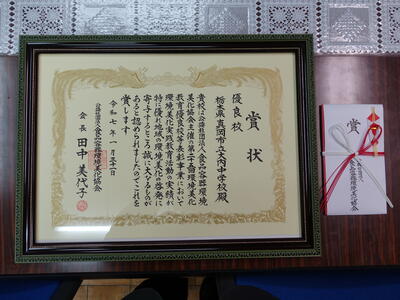 賞状
優良校
栃木県真岡市立大内中学校殿
貴校は公益社団法人食品容器環境
美化協会主催の第二十五回環境美化
教育優良校等表彰事業において
環境美化実践教育活動の実績が
特に優れ地域の環境美化の啓発に
寄与するところ誠に大なるものが
あると認められましたのでこれを
賞します
令和七年一月三十一日
公益社団法人食品容器環境美化協会
会長 田中美代子
賞
公益社団法人
食品容器環境美化協会